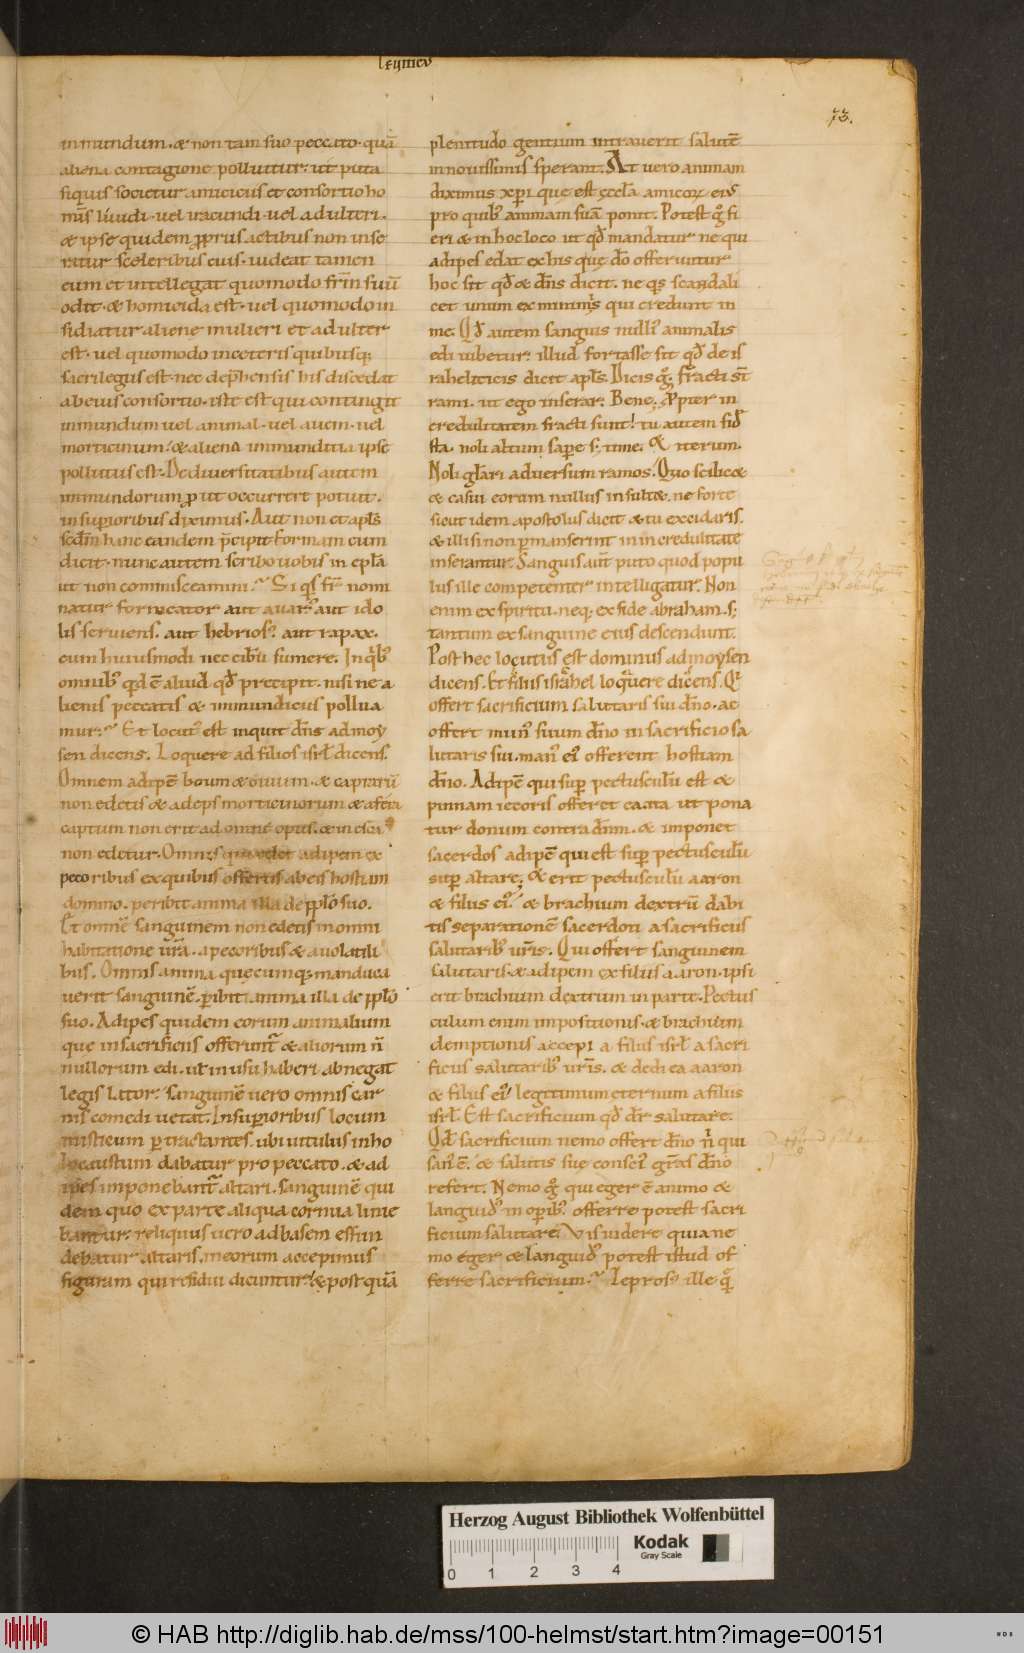 leuiticu
73.
inmundum. & non tam suo peccato. quā
aliena contagione polluitur: ut puta
siquis societur amicicus et consortio ho
mīs liuidi. uel iracundi. uel adulteri.
& ipse quidem ꝓprius actibus non inse
ratur sceleribus euis. uideat tamen
eum et intellegat quomodo frīn suū
odit. & homicida est. uel quomodo in
sidiatur aliene mulieri et adulter
est. uel quomodo inceteris quibusq;
sacrilegus est. nec dep̄hensis his discedat
abeius consortio. iste est qui contingit
inmundum uel animal. uel auem. uel
morticinum. & aliena inmunditia ipse
pollutus est. De diuersitatibus autem
inmundorum ꝓut occurrere potuit.
in superioribus diximus. Aut non et apl̄s
scd̄m hanc eandem p̄cipit formam cum
dicit. nunc autem scribo uobis in epl̄a
ut non commisceamini. Si qs fr̄ nomi
natur fornicator aut auarꝰ aut ido
lis seruiens. aut hebriosꝰ aut rapax.
cum huiusmodi nec cibū sumere. In qͥbꝰ
omnibꝰ quid ē aliud qd̄ precipit. nisi ne a
lienis peccatis & inmundicus pollua
mur. Et locutꝰ est inquit dn̄s ad moy
sen dicens. Loquere ad filios isrl̄ dicens.
Omnem adipē boum & ouium. & caprarū
non edetis & adeps morticinorum & afera
captum non erit ad omne opus. & in esca
non edetur. Omnis qui edet adipem ex
pecoribus ex quibus offertis abeis hostiam
domino. peribit anima illa de ꝓplō suo.
Et omnē sanguinem non edetis in omni
habitatione ur̄a. a pecoribus & a uolatili
bus. Omnis anima quecumq; manduca
uerit sanguinē. ꝑibit anima illa de ꝓplō
suo. Adipes quidem eorum animalium
que in sacrificiis offeruntͬ & aliorum n̄
nullorum edi. ul̄ in usu haberi abnegat
legis lator. sanguinē uero omnis car
nis comedi uetat. In suꝑioribus locum
misticum ꝑtractantes. ubi uitulus in ho
locaustum dabatur pro peccato. & ad
ipes imponebantͬ altari. sanguinē qui
dem quo ex parte aliqua cornua linie
bantur. reliquus uero ad basem effun
debatur altaris. in eorum accepimus
figuram qui residui dicuntur. & post quā
plenitudo gentium intrauerit salutē
in nouissimis sperant. At uero animam
diximus xp̄i que est eccl̄a amicoꝝ eiꝰ
pro quibꝰ animam suā ponit. Potest gͦ fi
eri & in hoc loco ut qd̄ mandatur ne qui
adipes edat ex his que dō offeruntur
hoc sit qd̄ & dn̄s dicit. ne qs scandali
cet unum ex minimis qui credunt in
me. Qd̄ autem sanguis nulliꝰ animalis
edi iubetur. illud fortasse sit qd̄ de is
raheliticis dicit apl̄s. Dicis gͦ. fracti st̄
rami. ut ego inserar. Bene. ꝓpter in
credulitatem fracti sunt. tu autem fid̄
sta. noli altum sapere s; time. & iterum.
Noli gl̄ari aduersum ramos. Quo scilicet
& casui eorum nullus insult&. ne forte
sicut idem apostolus dicit & tu excidaris.
& illi si non ꝑmanserint in incredulitate
inserantur. Sanguis aut̄ puto quod popu
lus ille competenter intelligatur. Non
enim ex spiritu. neq; ex fide abraham. s;
tantum ex sanguine eius descendunt.
Post hec locutus est dominus ad moysen
dicens. Et filius israhel loquere dicens. Qi
offert sacrificium salutaris sui dn̄o. ac
offert munꝰ suum dn̄o in sacrificio sa
lutaris sui. manꝰ eiꝰ offerent hostiam
dn̄o. Adipē qui super pectusculū est &
pinnam iecoris offeret ea. ita ut pona
tur donum contra dn̄m. & imponet
sacerdos adipē qui est suꝑ pectusculū
suꝑ altare. & erit pectusculū aaron
& filius eiꝰ. & brachium dextrū dabi
tis separationē sacerdoti a sacrificus
salutaribꝰ ur̄is. Qui offert sanguinem
salutaris & adipem ex filus aaron. ipsi
erit brachium dextrum in parte. Pectus
culum enim impositionis. & brachium
demptionis accepi a filus isrl̄ a sacri
ficus salutaribꝰ ur̄is. & dedi ea aaron
& filus eiꝰ legitimum eternum a filus
isrl̄. Est sacrificium qd̄ dr̄ salutare.
Qd̄ sacrificium nemo offert dn̄o nͥ qui
sanꝰ ē. & salutis sue consciꝰ gr̄as dn̄o
refert. Nemo gͦ qui eger ē animo &
languidꝰ in oꝑibꝰ offerre potest sacri
ficium salutare. Vis uidere quia ne
mo eger & languidꝰ potest istud of
ferre sacrificium. Leprosꝰ ille qͥ
Herzog August Bibliothek Wolfenbüttel
0 1 2 3 4
Kodak
Gray Scale
© HAB http://diglib.hab.de/mss/100-helmst/start.htm?image=00151